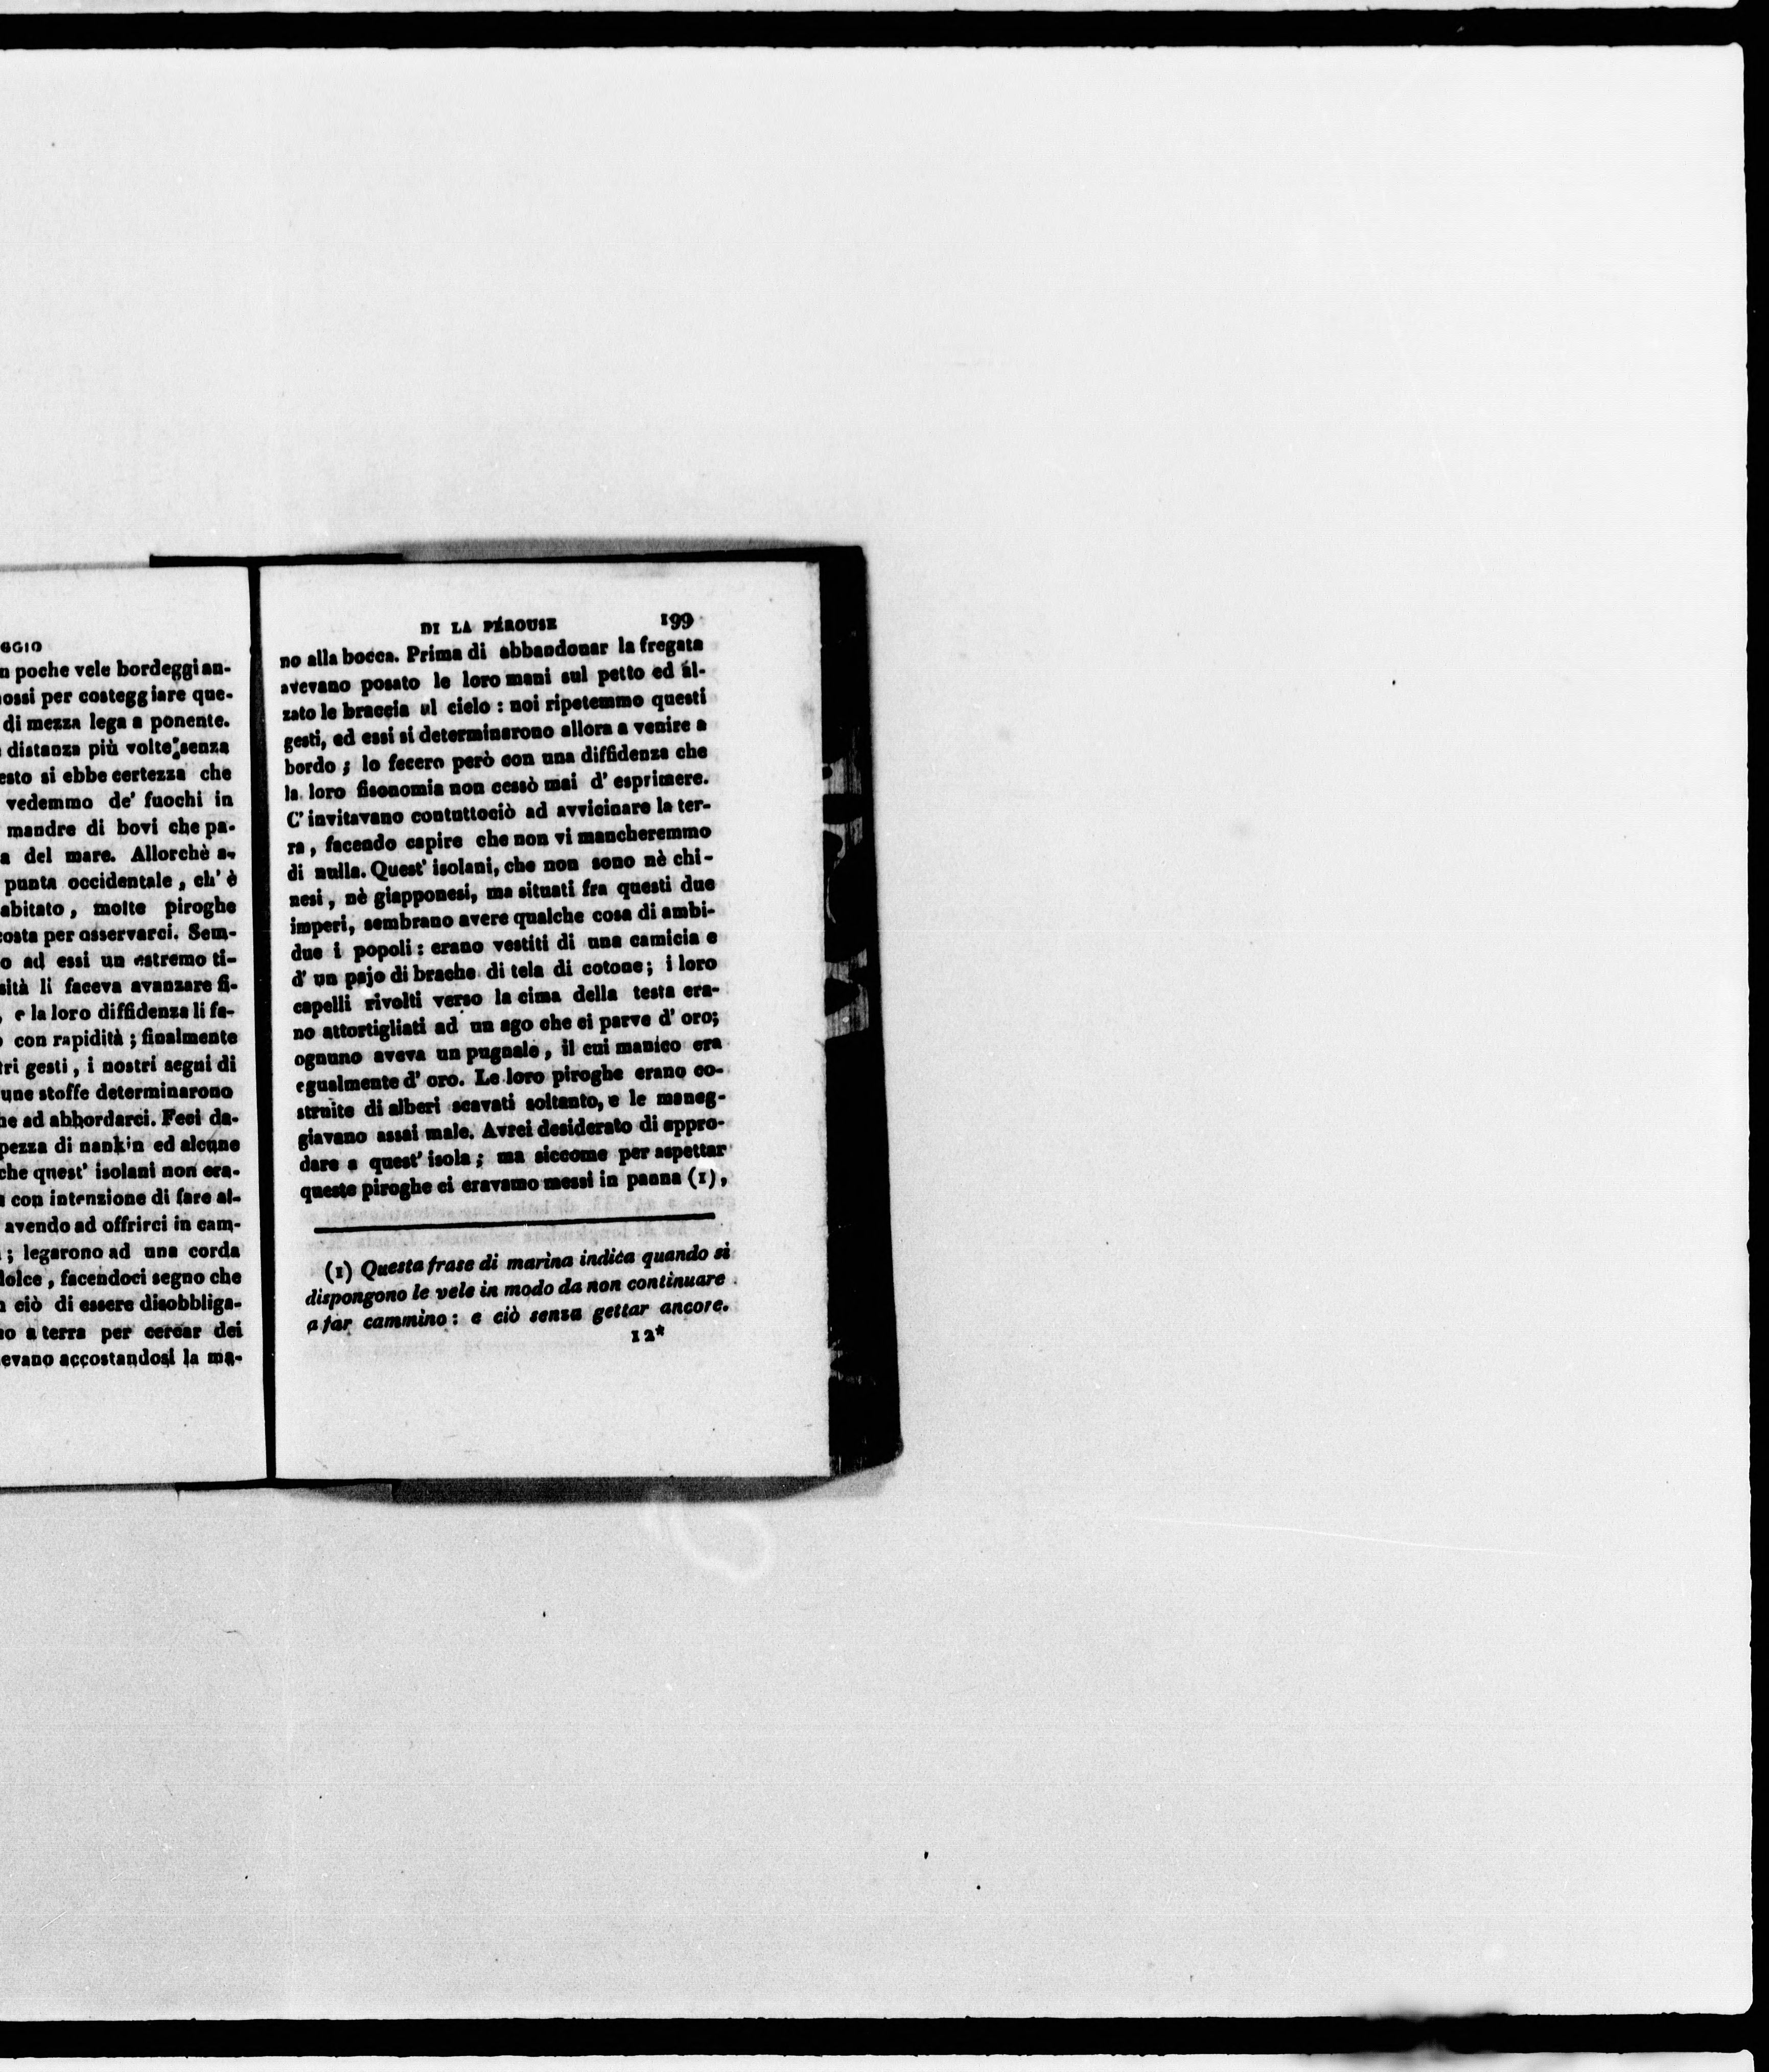 GGIO
n poche vele bordeggian-
ossi per costeggiare que-
di mezza lega a ponente.
distanza più volte senza
esto si ebbe certezza che
vedemmo de' fuochi in
mandre di bovi che pa-
a del mare. Allorchè a-
punta occidentale, ch' è
abitato, molte piroghe
costa per osservarci. Sem-
o ad essi un estremo ti-
sità li faceva avanzare fi-
, e la loro diffidenza li fa-
con rapidità; finalmente
tri gesti, i nostri segni di
une stoffe determinarono
he ad abbordarci. Feci da-
pezza di nankin ed alcune
che quest' isolani non era-
con intenzione di fare al-
avendo ad offrirci in cam-
; legarono ad una corda
dolce, facendoci segno che
ciò di essere disobbliga-
no a terra per cercar dei
evano accostandosi la ma-
DI LA PÉROUSE 199
no alla bocca. Prima di abbandonar la fregata
avevano posato le loro mani sul petto ed al-
zato le braccia al cielo: noi ripetemmo questi
gesti, ed essi si determinarono allora a venire a
bordo; lo fecero però con una diffidenza che
la loro fisonomia non cessò mai d' esprimere.
C' invitavano contuttociò ad avvicinare la ter-
ra, facendo capire che non vi mancheremmo
di nulla. Quest' isolani, che non sono nè chi-
nesi, nè giapponesi, ma situati fra questi due
imperi, sembrano avere qualche cosa di ambi-
due i popoli: erano vestiti di una camicia e
d' un pajo di brache di tela di cotone; i loro
capelli rivolti verso la cima della testa era-
no attortigliati ad un ago che ci parve d' oro;
ognuno aveva un pugnale, il cui manico era
egualmente d' oro. Le loro piroghe erano co-
struite di alberi scavati soltanto, e le maneg-
giavano assai male. Avrei desiderato di appro-
dare a quest' isola; ma siccome per aspettar
queste piroghe ci eravamo messi in panna (1),
(1) Questa frase di marina indica quando si
dispongono le vele in modo da non continuare
a far cammino: e ciò senza gettar ancore.
12*